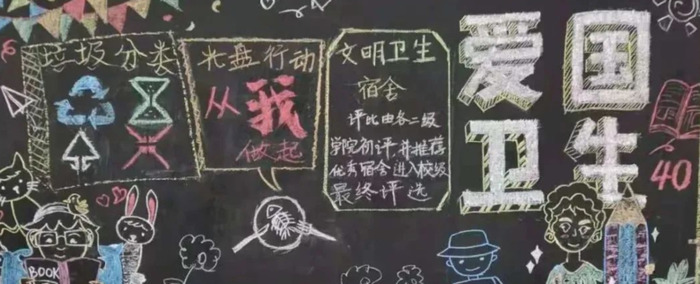 垃圾分类
光盘行动
从
我
做起
文明卫生
宿舍
评比由各二级
学院初评并推荐
优秀宿舍进入校级
最终评选
爱国
卫生
40
BOOK